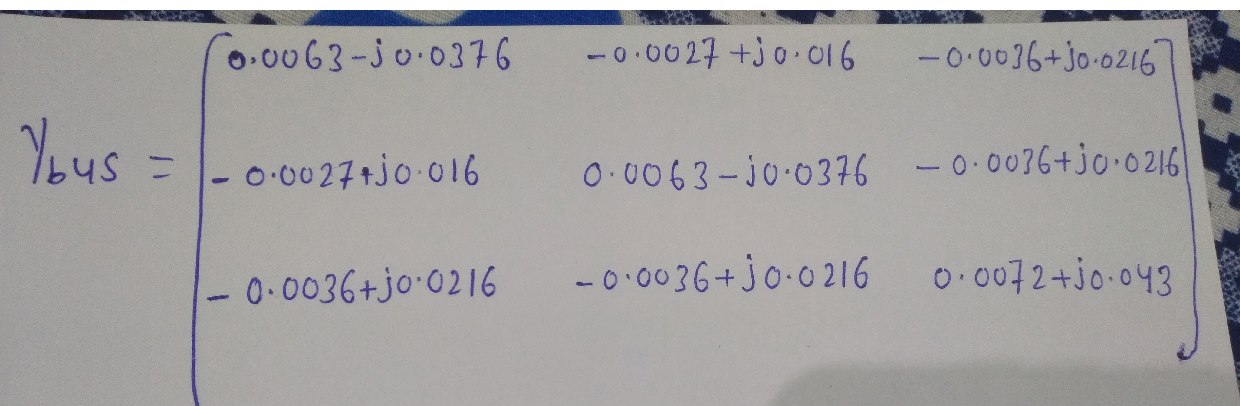 0.0063-j0.0376 -0.0027+j0.016 -0.0036+j0.0216
Ybus = -0.0027+j0.016 0.0063-j0.0376 -0.0036+j0.0216
-0.0036+j0.0216 -0.0036+j0.0216 0.0072+j0.043